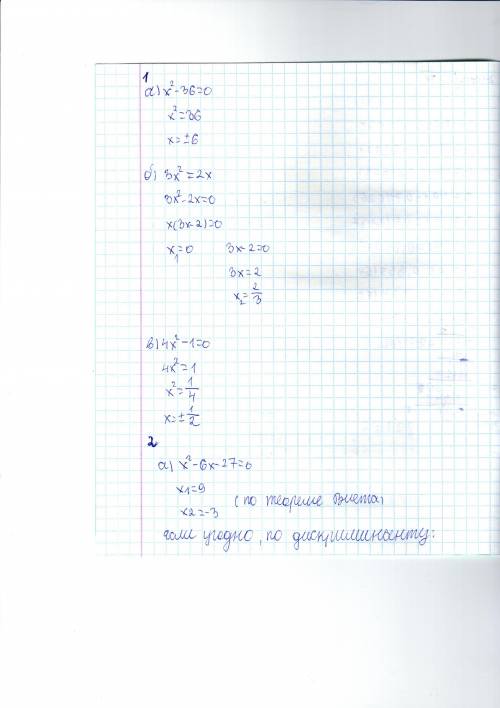 1
а) x²-36=0
x²=36
x=±6
б) 3x²=2x
3x²-2x=0
x(3x-2)=0
x₁=0 3x-2=0
3x=2
x₂=2/3
в) 4x²-1=0
4x²=1
x²=1/4
x=±1/2
2
а) x²-6x-27=0
x1=9
x2=-3 (по теореме Виета)
если угодно, по дискриминанту: